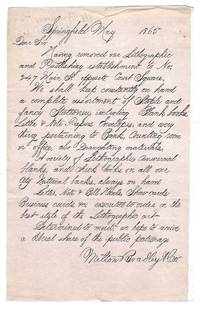 Springfield May 1865
Dear Sir,
Having removed our Lithographic
and Publishing establishment to No.
247 Main St. opposite Court Square,
We shall keep constantly on hand
a complete assortment of Staple and
fancy Stationery, including Blank books
Letter & Note Papers, Envelopes, and every
thing pertaining to Bank, Counting room
or office, also Draughting materials.
A variety of Lithographic Commercial
Blanks, and Check books on all our
City National banks, always on hand
Letter, Note & Bill Heads, Show cards
Business cards &c executed to order in the
best style of the Lithographic art
Determined to merit, we hope to receive
a liberal share of the public patronage
Milton Bradley & Co.